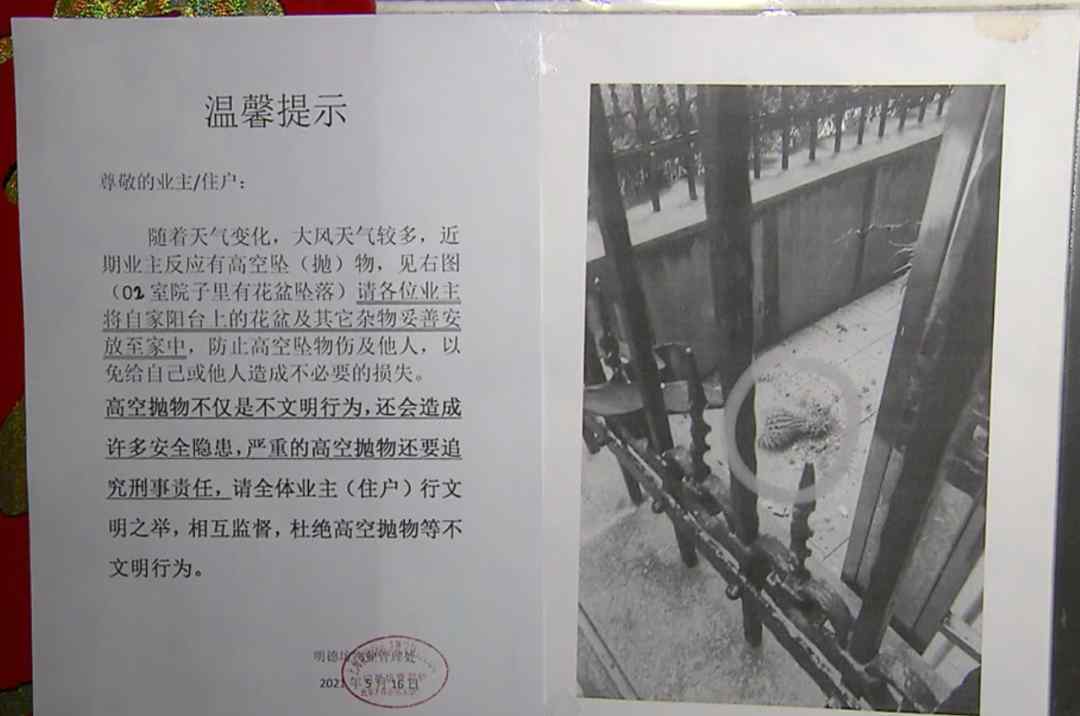 温馨提示
尊敬的业主/住户：
随着天气变化，大风天气较多，近
期业主反应有高空坠（抛）物，见右图
（02室院子里有花盆坠落）请各位业主
将自家阳台上的花盆及其它杂物妥善安
放至家中，防止高空坠物伤及他人，以
免给自己或他人造成不必要的损失。
高空抛物不仅是不文明行为，还会造成
许多安全隐患，严重的高空抛物还要追
究刑事责任，请全体业主（住户）行文
明之举，相互监督，杜绝高空抛物等不
文明行为。
明德 管理处
2021年5月16日